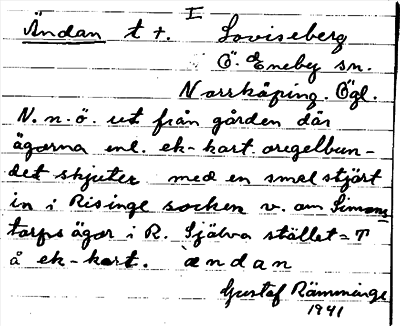 I
Ändan t +. Loviseberg
Ö. Eneby sn.
Norrköping. Ögl.
N.n.ö. ut från gården där
ägorna enl. ek-kart. oregelbun-
det skjuter med en smal stjärt
in i Risinge socken v. om Simons
torps ägor i R. Själva stället = T
å ek-kart. ändan
Gustaf Rämminge
1941